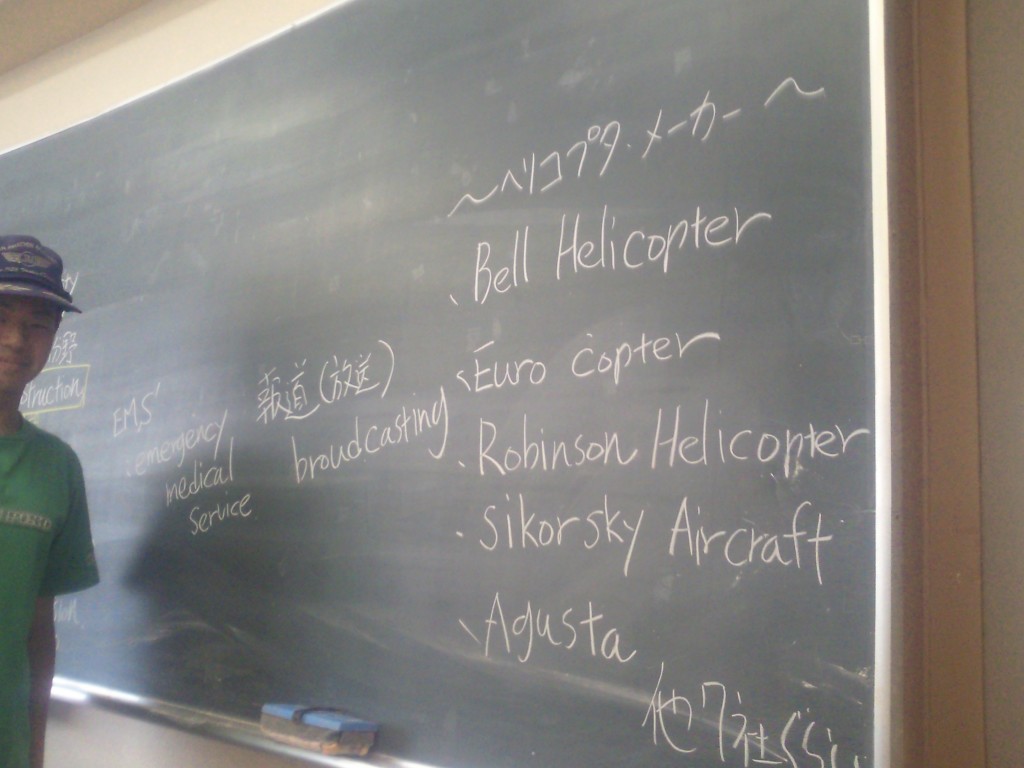 〜ヘリコプタ.メーカー〜
、Bell Helicopter
、Euro copter
、Robinson Helicopter
・Sikorsky Aircraft
、Agusta
他7社ぐらい
報道(放送)
broudcasting
EMS
:emergency
medical
Service
struction